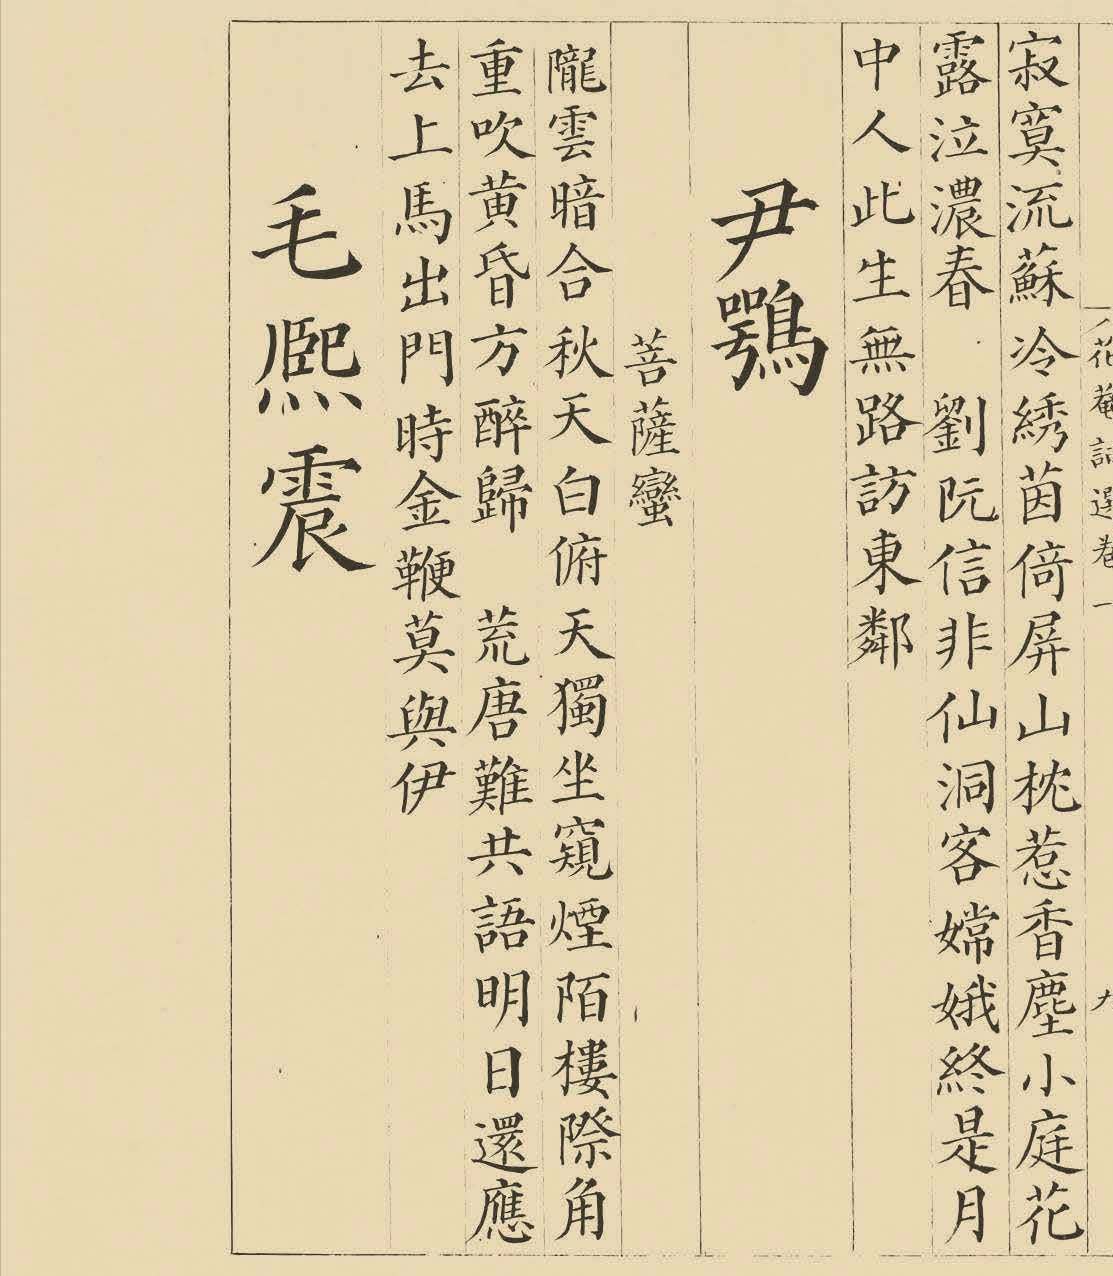 花菴詞選卷一 九
寂寞流蘇冷綉茵倚屏山枕惹香塵小庭花
露泣濃春 劉阮信非仙洞客嫦娥終是月
中人此生無路訪東鄰
尹鶚
菩薩蠻
隴雲暗合秋天白俯天獨坐窺煙陌樓際角
重吹黄昏方醉歸 荒唐難共語明日還應
去上馬出門時金鞭莫與伊
毛熙震